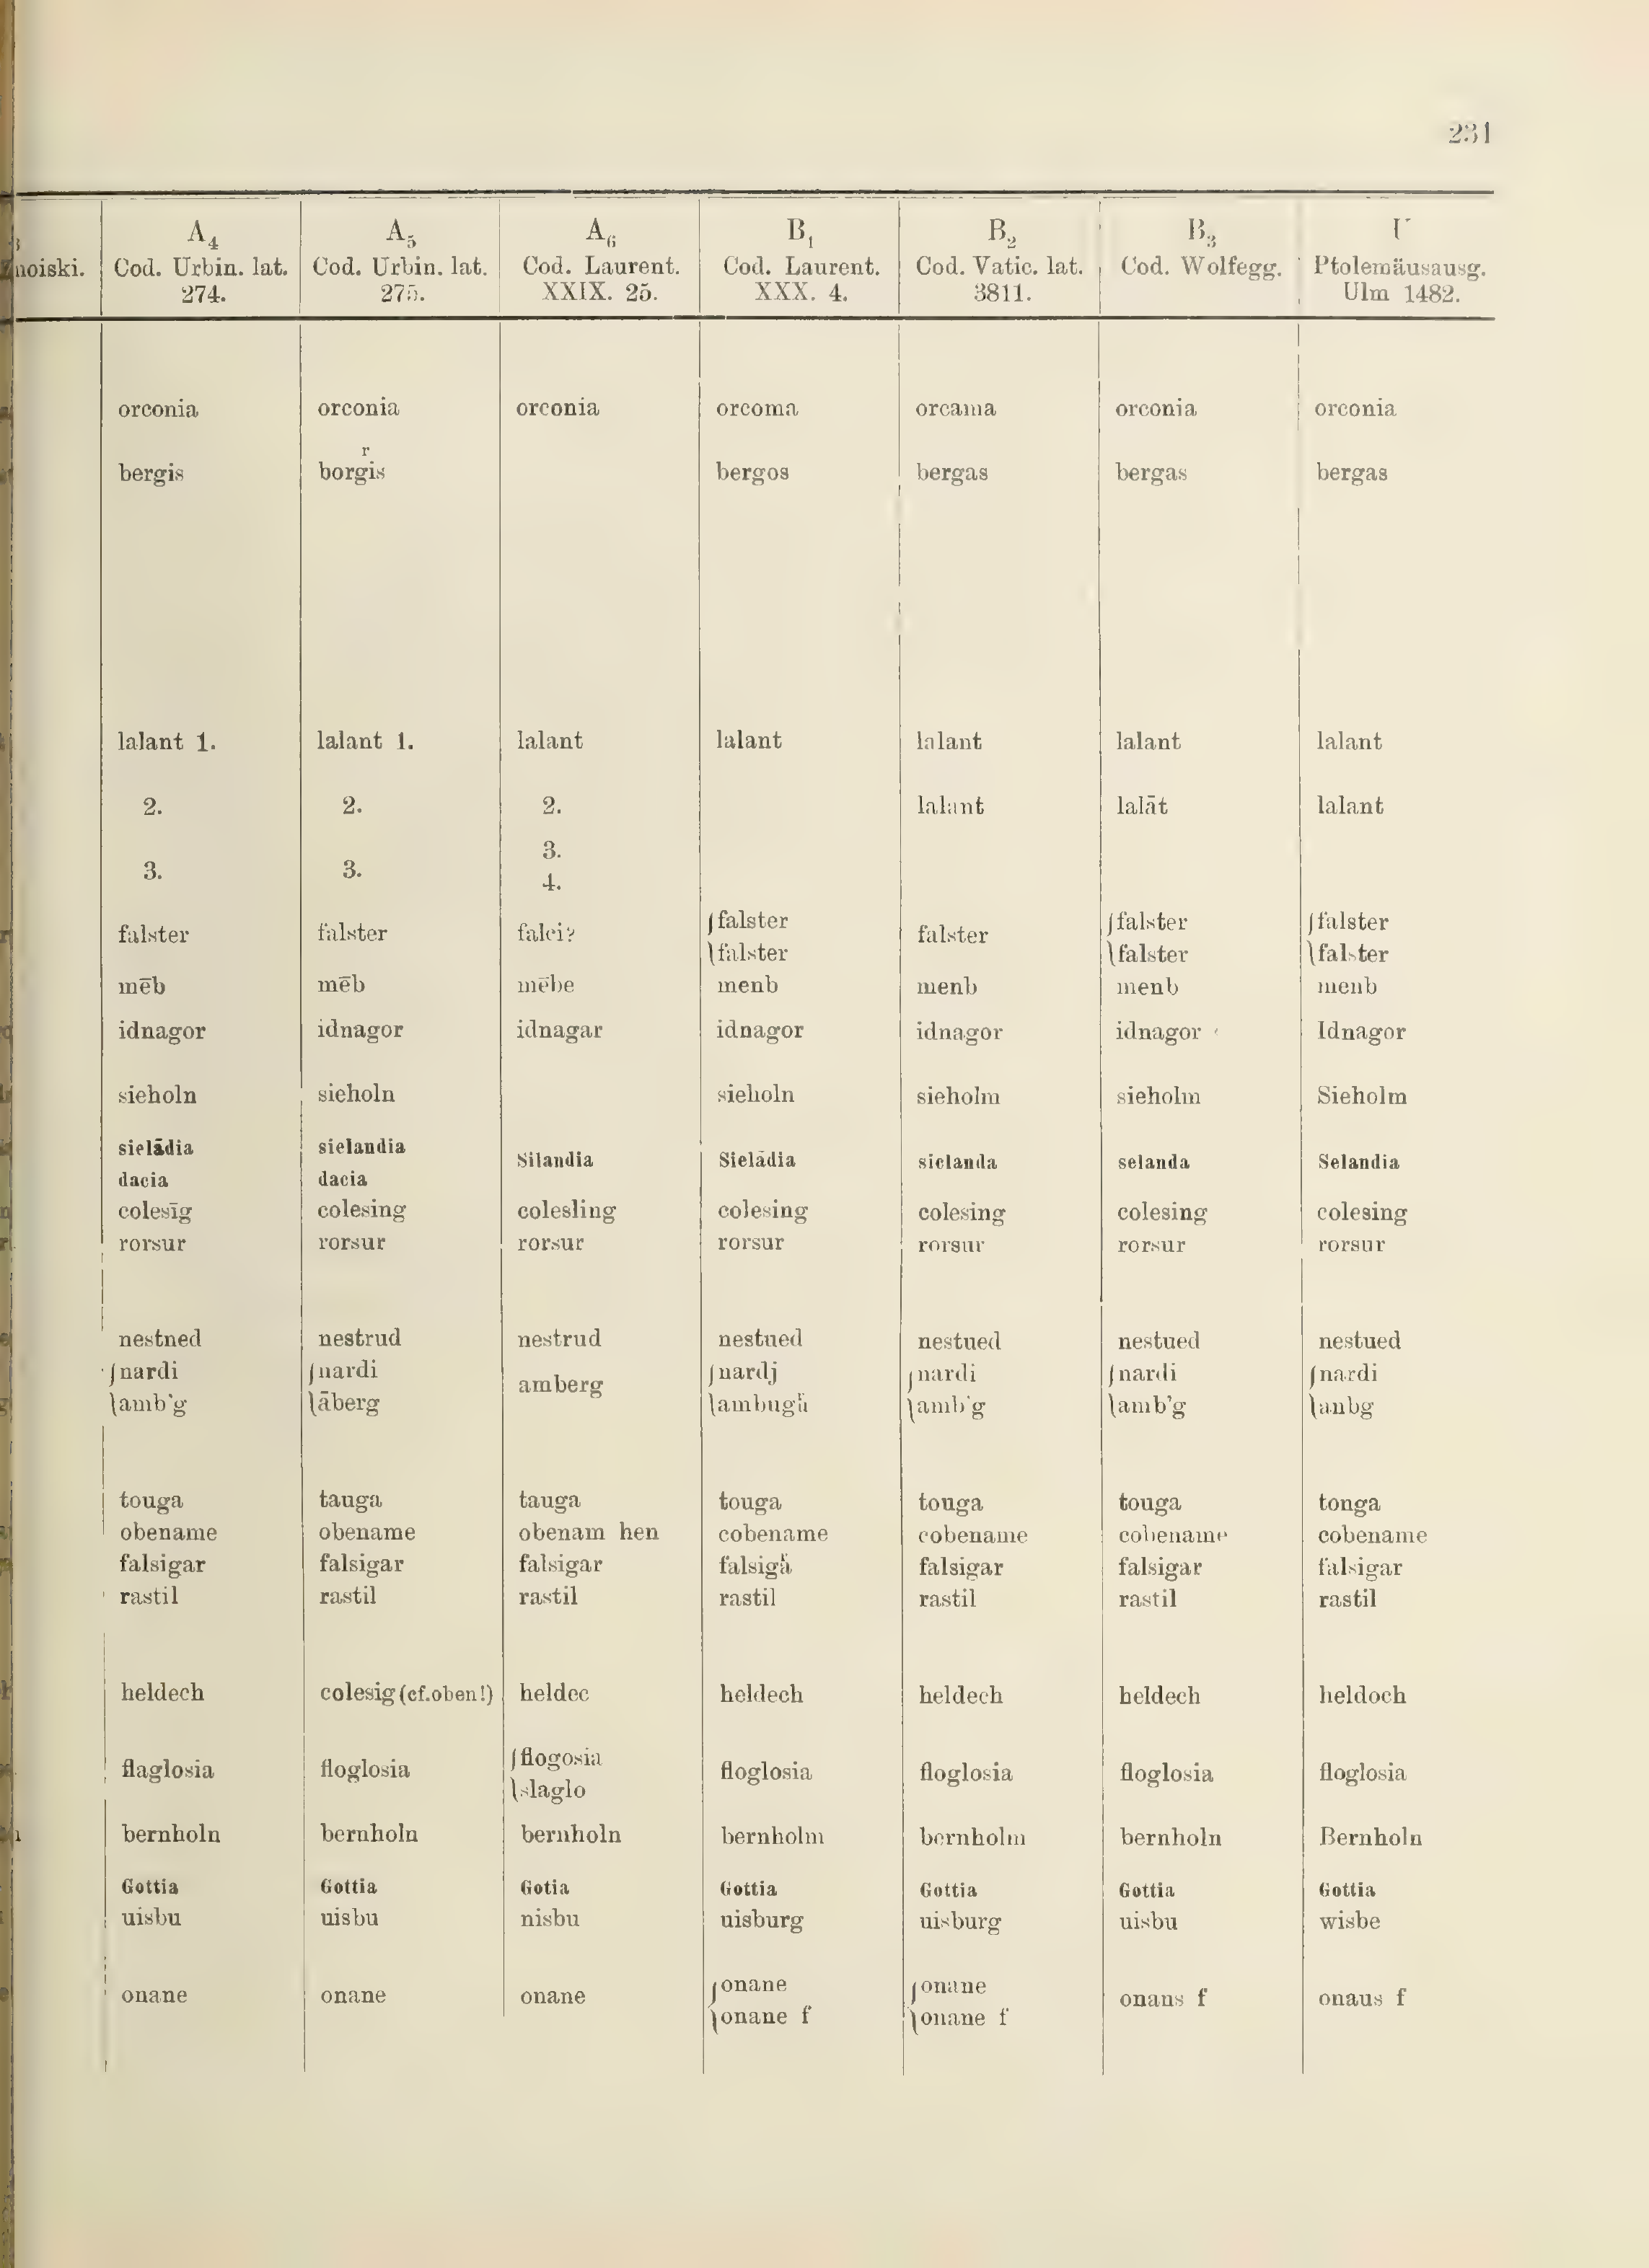 231
A₄ A₅ A₆ B₁ B₂ B₃
noiski. Cod. Urbin. lat. Cod. Urbin. lat. Cod. Laurent. Cod. Laurent. Cod. Vatic. lat. Cod. Wolfegg. Ptolemäusausg.
274. 275. XXIX. 25. XXX. 4. 3811. Ulm 1482.
orconia orconia orconia orcoma orcama orconia orconia
r
bergis borgis bergos bergas bergas bergas
lalant 1. lalant 1. lalant lalant lalant lalant lalant
2. 2. 2. lalant lalāt lalant
3.
3. 3.
4.
⎧falster ⎧falster ⎧falster
falster falster falci? falster
⎩falster ⎩falster ⎩falster
mēb mēb mēbe menb menb menb menb
idnagor idnagor idnagar idnagor idnagor idnagor Idnagor
sieholn sieholn sieholn sieholm sieholm Sieholm
sielādia sielandia
Silandia Sielādia sielanda selanda Selandia
dacia dacia
colesīg colesing colesling colesing colesing colesing colesing
rorsur rorsur rorsur rorsur rorsur rorsur rorsur
nestned nestrud nestrud nestued nestued nestued nestued
⎧nardi ⎧nardi ⎧nardj ⎧nardi ⎧nardi ⎧nardi
amberg
⎩amb'g ⎩āberg ⎩amb'g ⎩amb'g ⎩anbg
touga tauga tauga touga touga touga tonga
obename obename obenam hen cobename cobename cobename cobename
falsigar falsigar falsigar falsigar falsigar falsigar
rastil rastil rastil rastil rastil rastil rastil
heldech colesig (cf. oben!) heldec heldech heldech heldech heldoch
⎧flogosia
flaglosia floglosia floglosia floglosia floglosia floglosia
⎩slaglo
bernholn bernholn bernholn bernholm bornholm bernholn Bernholn
Gottia Gottia Gotia Gottia Gottia Gottia Gottia
uisbu uisbu nisbu uisburg uisburg uisbu wisbe
⎧onane ⎧onane
onane onane onane onans f onaus f
⎩onane f ⎩onane f